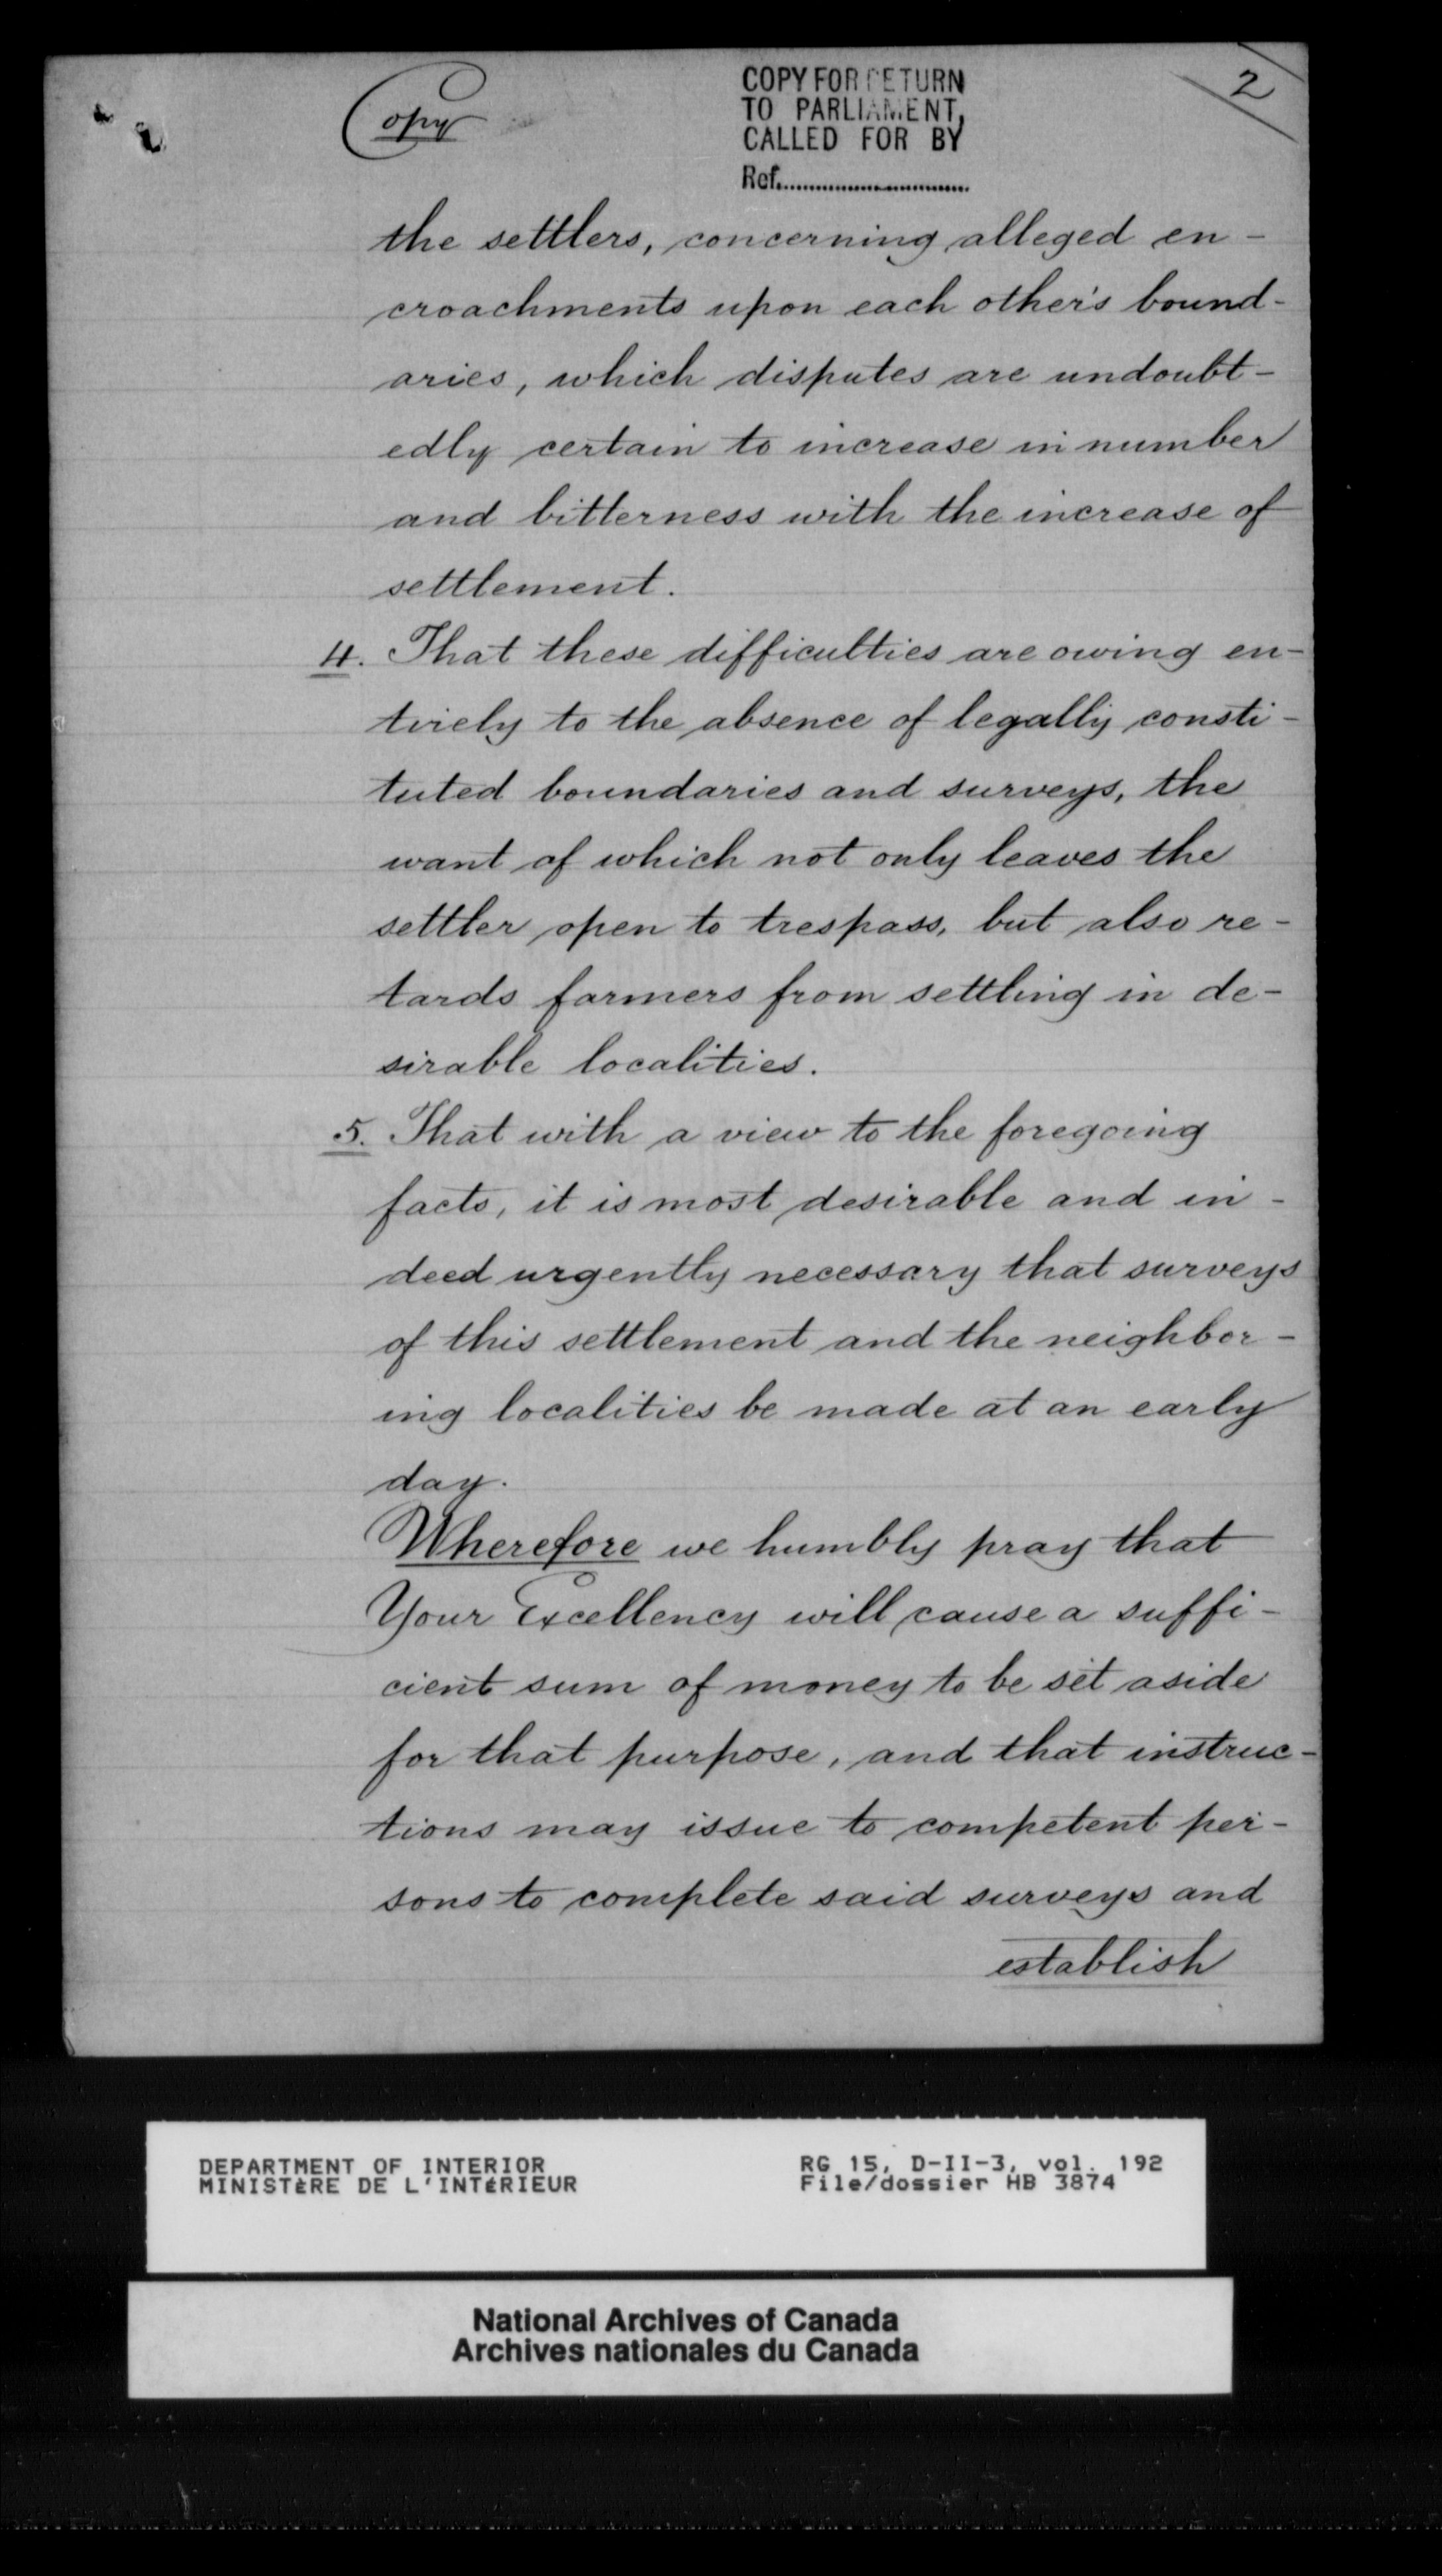 Copy
COPY FOR RETURN
TO PARLIAMENT,
CALLED FOR BY
Ref...........................
2
the settlers, concerning alleged en-
croachments upon each other's bound-
aries, which disputes are undoubt-
edly certain to increase in number
and bitterness with the increase of
settlement.
4. That these difficulties are owing en-
tirely to the absence of legally consti-
tuted boundaries and surveys, the
want of which not only leaves the
settler open to trespass, but also re-
tards farmers from settling in de-
sirable localities.
5. That with a view to the foregoing
facts, it is most desirable and in-
deed urgently necessary that surveys
of this settlement and the neighbor-
ing localities be made at an early
day.
Wherefore we humbly pray that
Your Excellency will cause a suffi-
cient sum of money to be set aside
for that purpose, and that instruc-
tions may issue to competent per-
sons to complete said surveys and
establish
DEPARTMENT OF INTERIOR
MINISTÈRE DE L'INTÉRIEUR
RG 15, D-II-3, vol. 192
File/dossier HB 3874
National Archives of Canada
Archives nationales du Canada